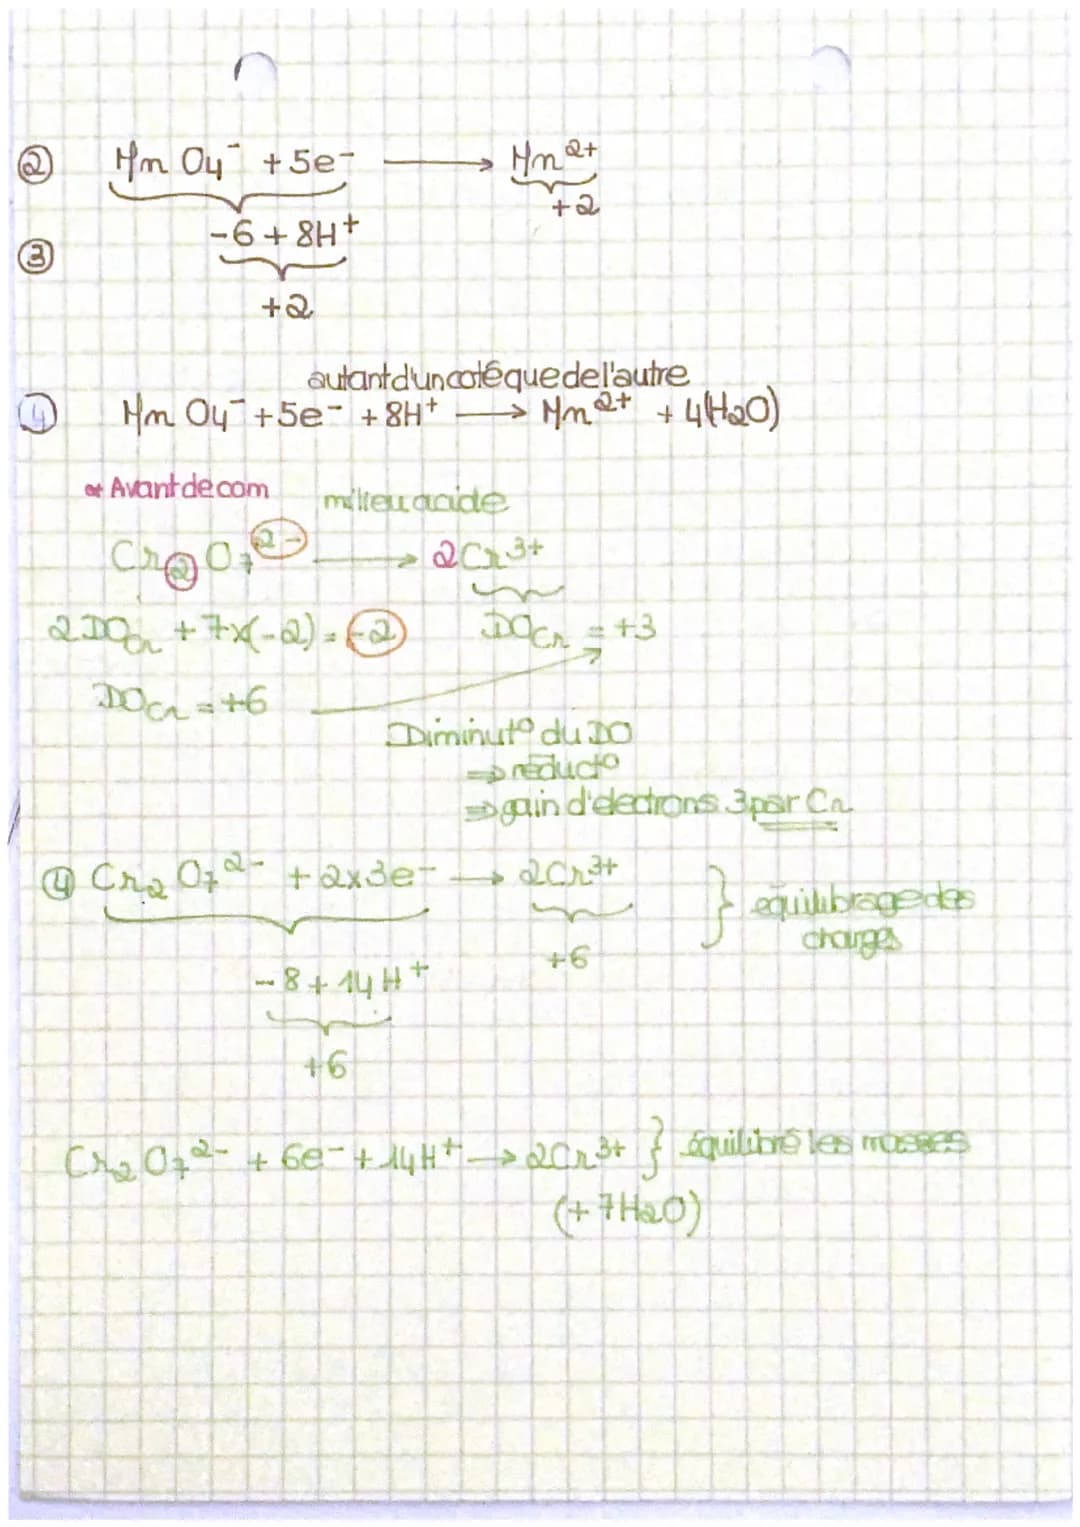 ② MnO4⁻ + 5e⁻ ⟶ Mn²⁺
+2
-6 + 8H⁺
③
+2
autant d'un coté que de l'autre
④ MnO4⁻ + 5e⁻ + 8H⁺ ⟶ Mn²⁺ + 4(H2O)
Avant de com
milieu acide
Cr2O7²⁻ ⟶ 2Cr³⁺
2DOCr + 7x(-2) = -2 DOCr = +3
DOCr = +6
Diminut° du DO
⇒ réduct°
⇒ gain d'electrons 3 par Cr
④ Cr2O7²⁻ + 2x3e⁻ ⟶ 2Cr³⁺ } équilibrage des
charges
+6
-8 + 14H⁺
+6
Cr2O7²⁻ + 6e⁻ + 14H⁺ ⟶ 2Cr³⁺ } équilibré les masses
(+ 7H2O)